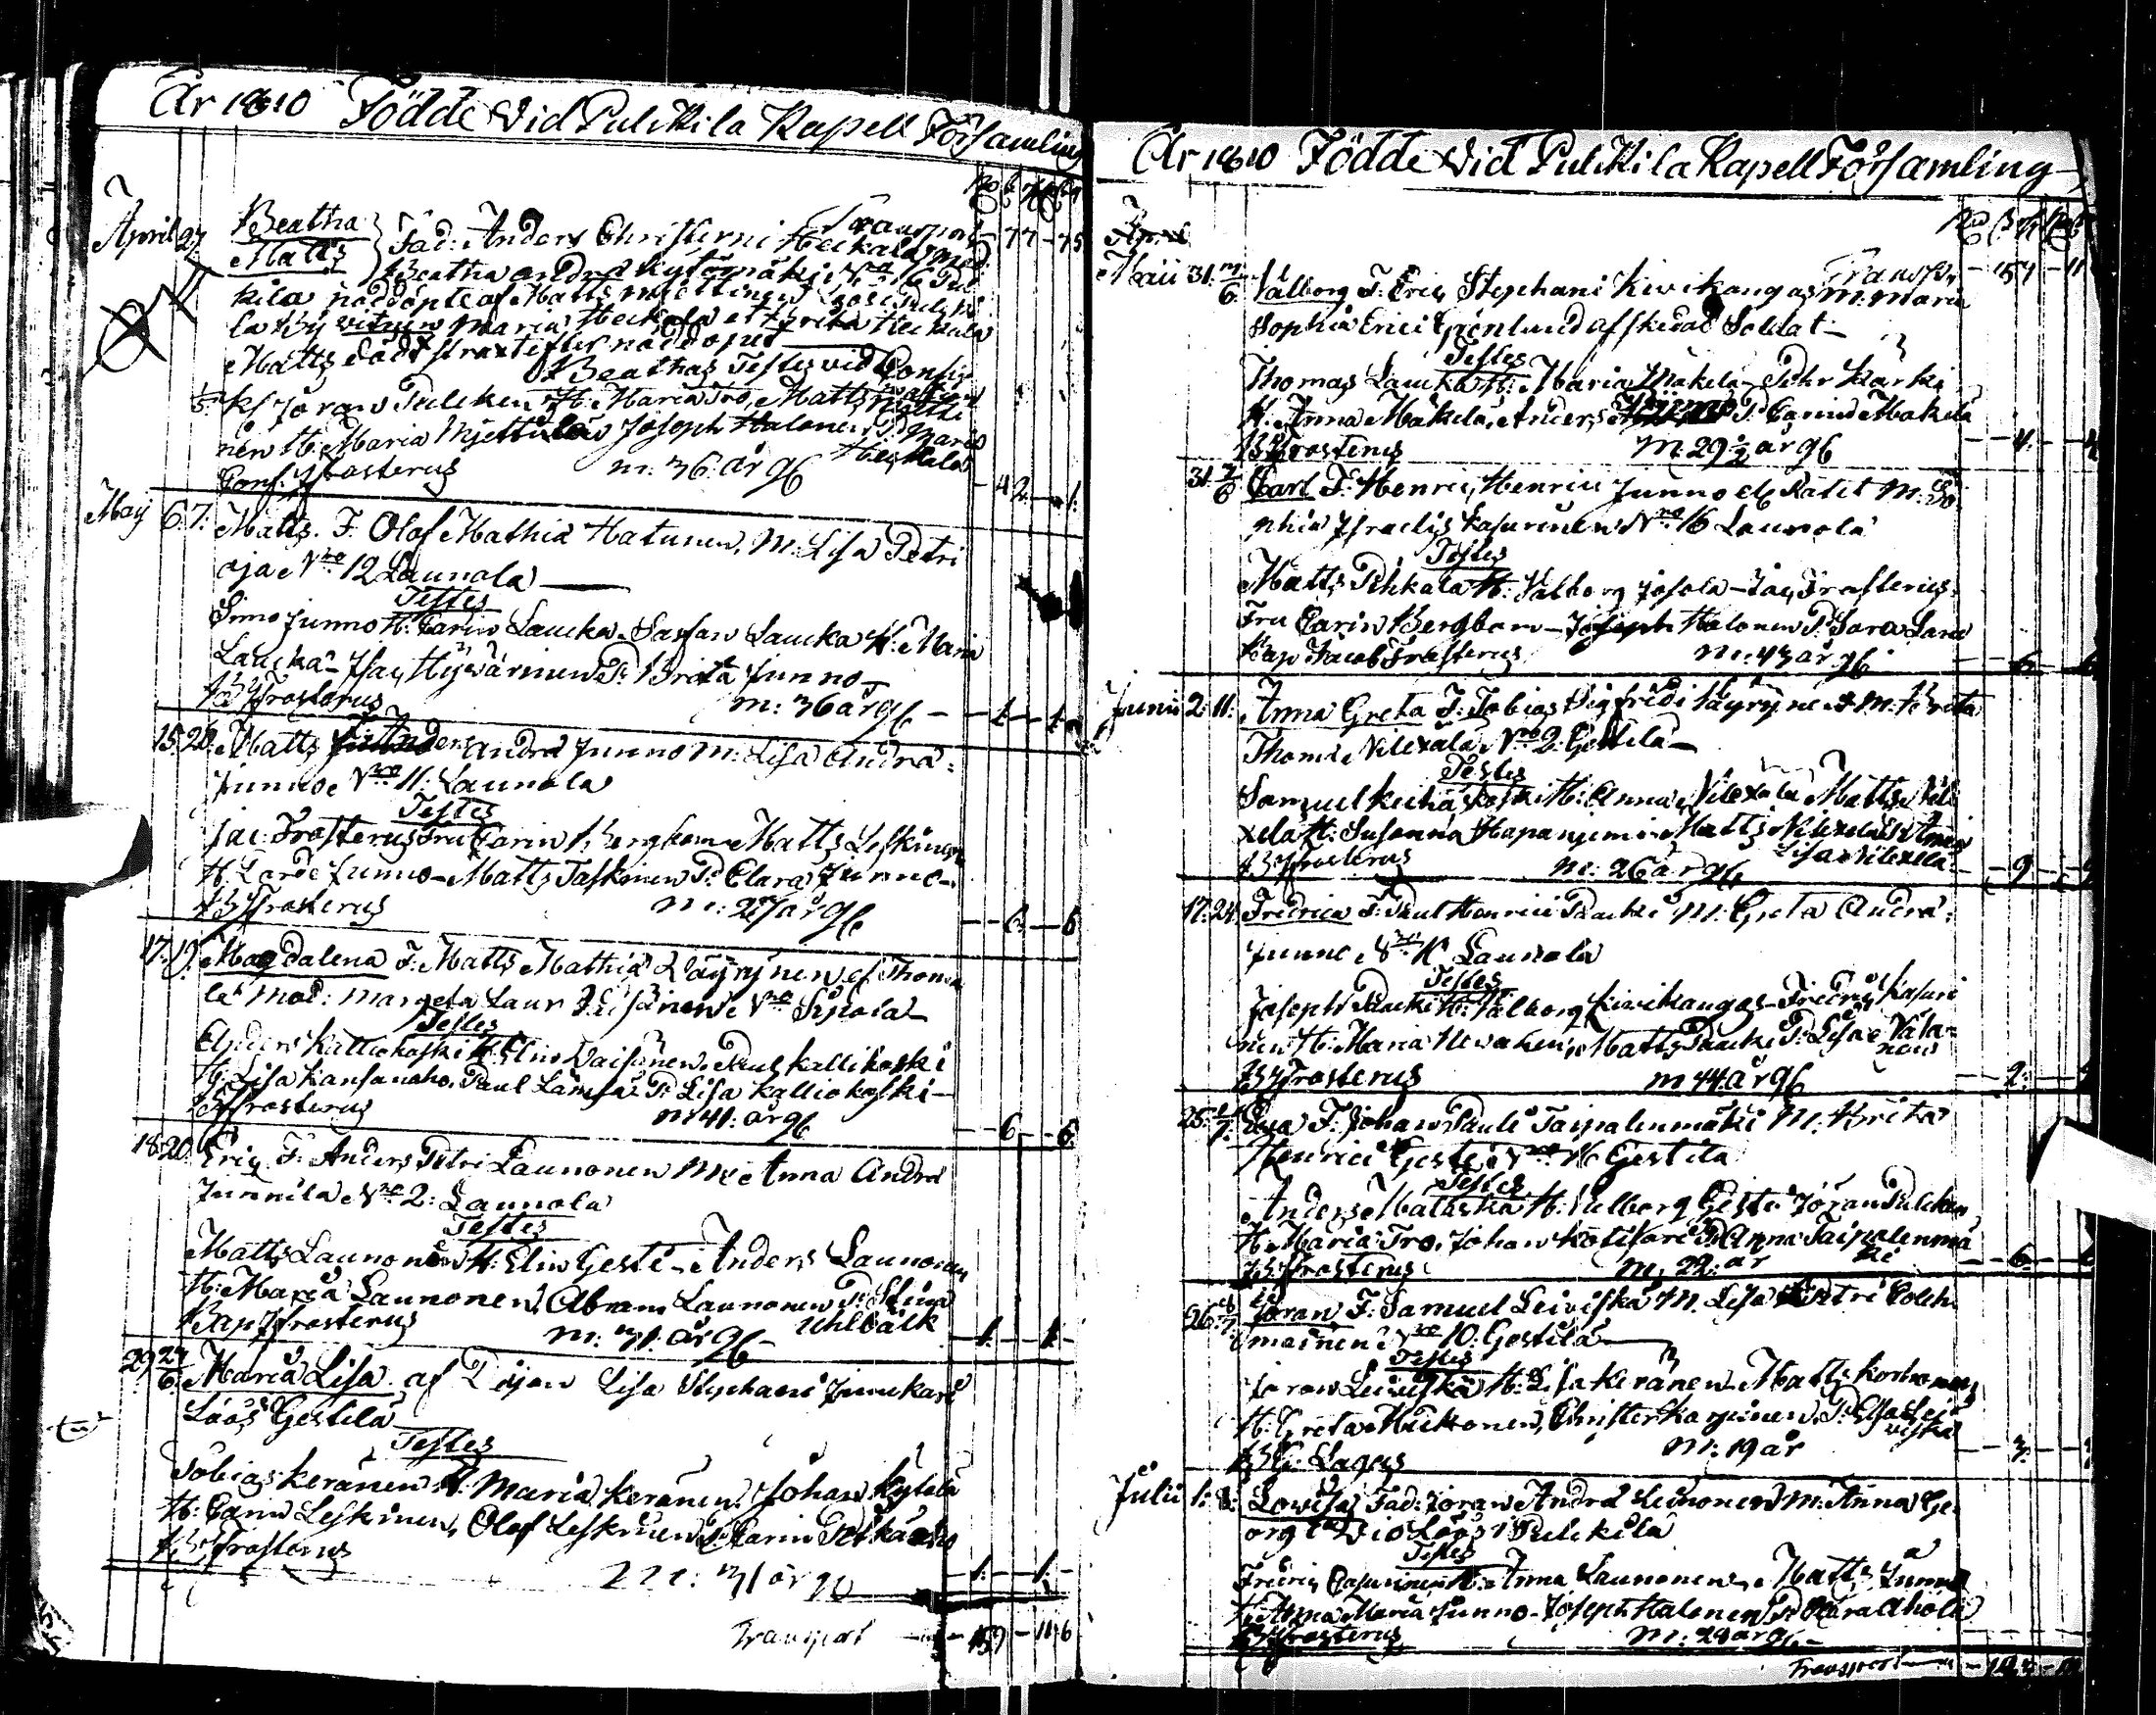 År 1810 Födde vid Pulkkila Kapell Församling
Transport 77 75
April 27. Beatha Matts Fad: Anders Christerni Heikala Mod:
Beatha Andræ Kylmämäki N:ro 16 Pul
kila nöddöpte af Matts Mjettinen Löös i Pulki
la By vitnen Maria Heikala et Greta Heikala
Matts död strax efter nöddopet
Beathas Testes vid Confir
mation
Kf Jöran Pulckinen H: Maria Tro, Matts Mjetti
nen H: Maria Mjettinen Joseph Halonen P: Maria
Heikala
Conf. J Frosterus m: 36 år
May 6 7: Matts. F. Olof Mathiæ Hatunen, M: Lisa Petri
oja N:ro 12 Launola
Testes
Junno H: Carin Laucka. Staffan Laucka H: Maria
Laucka. Isac Hyvärinen P: Brita Junno
B J Frosterus m: 36 år
15 20. Matts Anders Andræ Junno M: Lisa Andræ
Junno N:ro 11: Launola
Testes
Jac: Frosterus Fru Carin Bergbom Matts Leskinen
H: Junno. Matts Taskinen P: Clara Junno
B J Frosterus m: 27 år
17: 19: Magdalena F. Matts Mathiæ Väyrynen et Thoma
la Mod: Margeta Laur Väisänen N:ro Sipola
Testes
Anders Kalliokoski H: Elin Vaisänen. Paul Kalliokoski
H: Lisa Kansanaho. Paul Lämsä P: Lisa Kalliokoski
B J Frosterus m 41: år
18 20. Eric F. Anders Petri Launonen M: Anna Andræ
Junnila N:ro 2: Launola
Testes
Matts Launonen H: Elin Gesti. Anders Launonen
H: Maria Launonen, Abram Launonen P: Stina
Uhlbäck
Bap J Frosterus m: 31: år
29 24/6 Maria Lisa af Pigan Lisa Stephani Junnkari
Löös Gestilä
Testes
Tobias Keränen H: Maria Keränen. Johan Kylmälä
H: Carin Leskinen, Olof Leskinen P: Carin
B J Frosterus
m: 31 år
Transport
År 1810 Födde vid Pulkkila Kapell Församling
Transp:
Maii 31. 3/6 Valborg F. Eric Stephani Kivikangas M: Maria
Sophia Erici Grönlund afskedad Soldat
Testes
Thomas Laucka H: Maria Mäkelä. Pehr Karki
H: Anna Mäkelä. Anders P: Carin Mäkelä
B J Frosterus m: 29 1/2 år
31 3/6 Carl F: Henric Henrici Junno el Rätit M: So
phia Israelis Kasurinen N:ro 16 Launola
Testes
Matts Pihkala H: Valborg Josola. Jac Frosterus
Fru Carin Bergbom. Joseph Halonen P: Sara
Bap Jacob Frosterus m: 43 år
Junii 2: 11: Anna Greta F: Tobias Sigfridi Väyrynen M: Brita
Thomæ Vilexela N:ro 2: Gestilä
Testes
Samuel Keihäskoski H: Anna Vilexela Matts Vile
xela H: Susanna Haapaniemi. Matts Vilexela P: Anna
Lisa Vilexela
B J Frosterus m: 26 år
17: 24. Fredrica F: Paul Henrici Paucki M: Greta Andræ
Junno N:ro 11 Launola
Testes
Joseph Paucki H: Valborg Kivikangas. Fredric Kasuri
nen H: Maria Uvakken. Matts Paucki P: Lisa Väla
nen
B J Frosterus m 44 år
25: 1/7 Eva F. Johan Pauli Taipalenmäki M: Brita
Henrici Gesti N:ro 16 Gestilä
Testes
Anders Matlaska H: Valborg Gesti. Jöran Pulckinen
H: Maria Tro. Johan Kotisari P: Anna Taipalenmä
ki
B J Frosterus m: 22: år
26: 8/7: Jöran F: Samuel Leiviskä M: Lisa Petri Coleh
mainen N:ro 10. Gestilä
Testes
Jöran Leiviskä H: Lisa Keränen. Matts Korhonen
H: Greta Mickonen, Christer Karjainen, P: Elsa Lei
viskä
B G: Lagus m: 19 år
Julii 1: 8: Lovisa Fad: Jöran Andræ Leinonen M: Anna Ge
orgi Löös i Pulckila
Testes
Fredric Casurinen H: Anna Launonen. Matts Junno
H: Anna Maria Junno. Joseph Halonen P: Clara Ahola
B J Frosterus m: 28 år
Transport